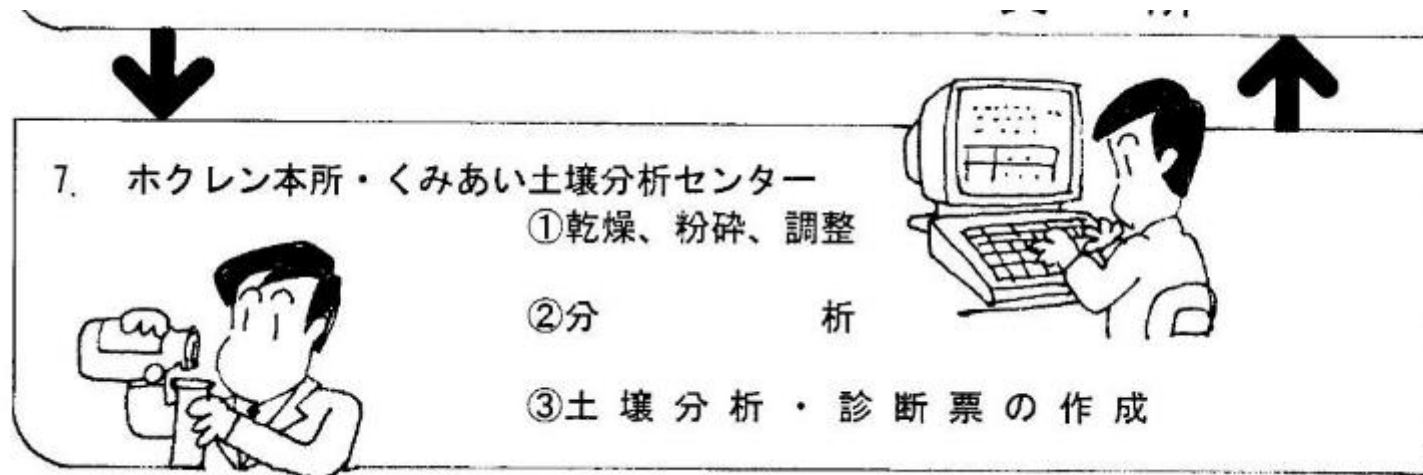 7. ホクレン本所・くみあい土壌分析センター
①乾燥、粉砕、調整
②分　　　　析
③土壌分析・診断票の作成